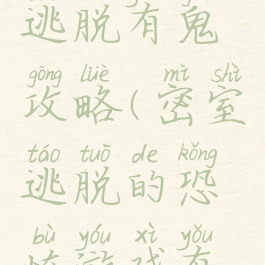 逃脱有鬼
gōng lüè mì shì
攻略(密室
táo tuō de kǒng
逃脱的恐
bù yóu xì yǒu